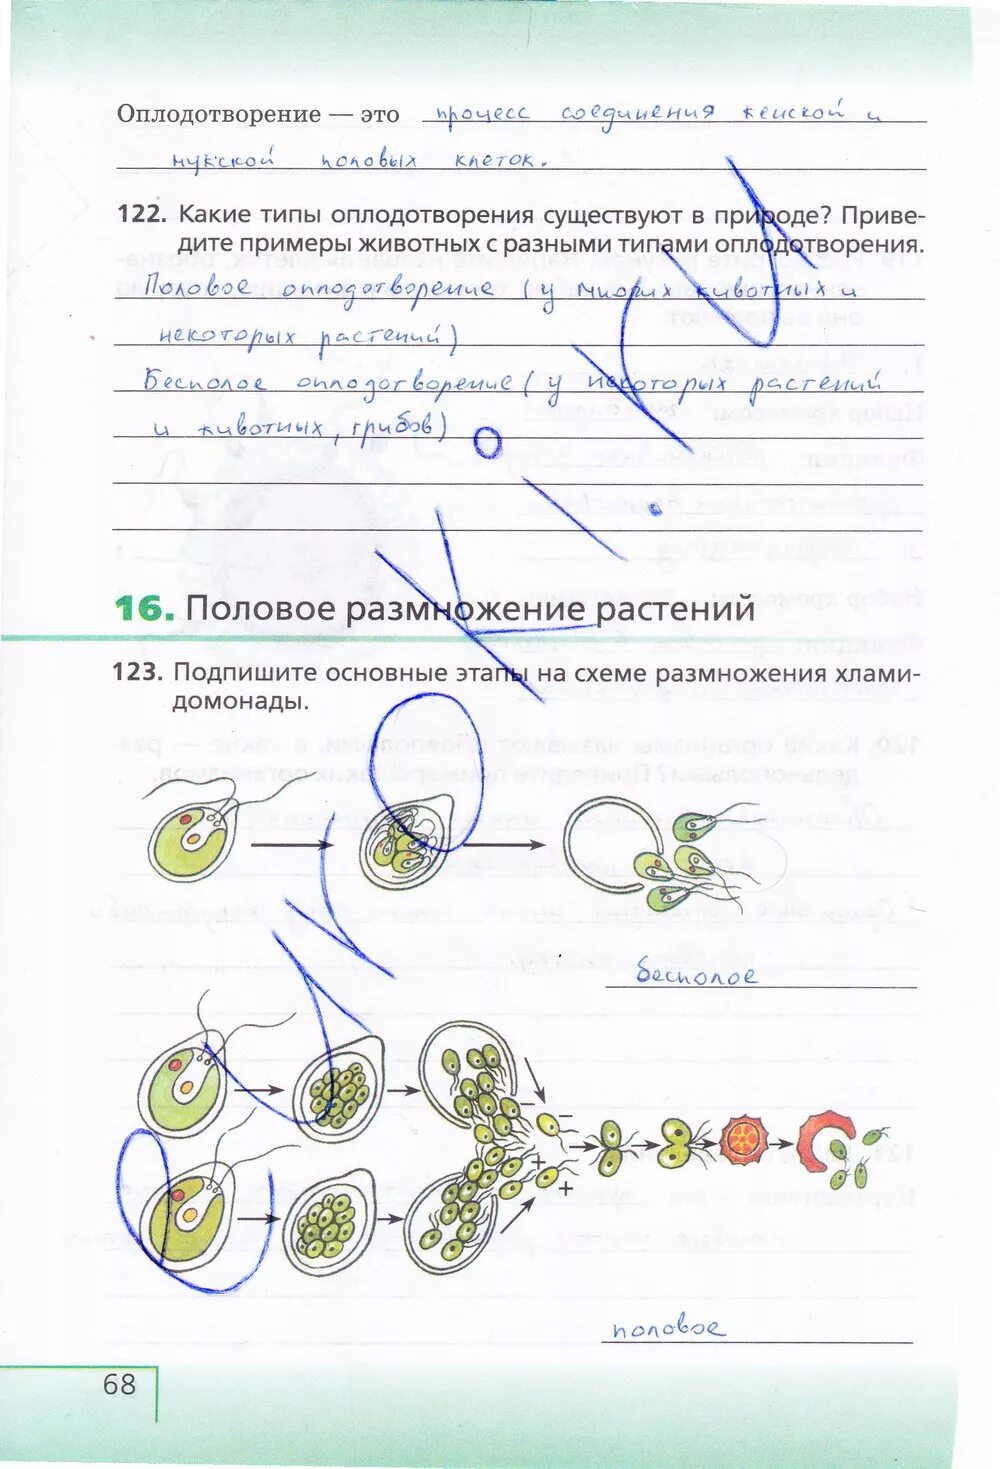 Оплодотворение — это процесс соединения женской и
мужской половых клеток.
122. Какие типы оплодотворения существуют в природе? Приве-
дите примеры животных с разными типами оплодотворения.
Половое оплодотворение (у многих животных и
некоторых растений)
Бесполое оплодотворение (у некоторых растений
и животных, грибов)
16. Половое размножение растений
123. Подпишите основные этапы на схеме размножения хлами-
домонады.
бесполое
− −
+ +
половое
68